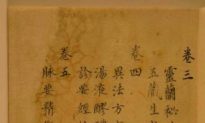 卷三
靈蘭秘
五藏生
卷四
異法方
湯液醪
診要經
卷五
脉要精